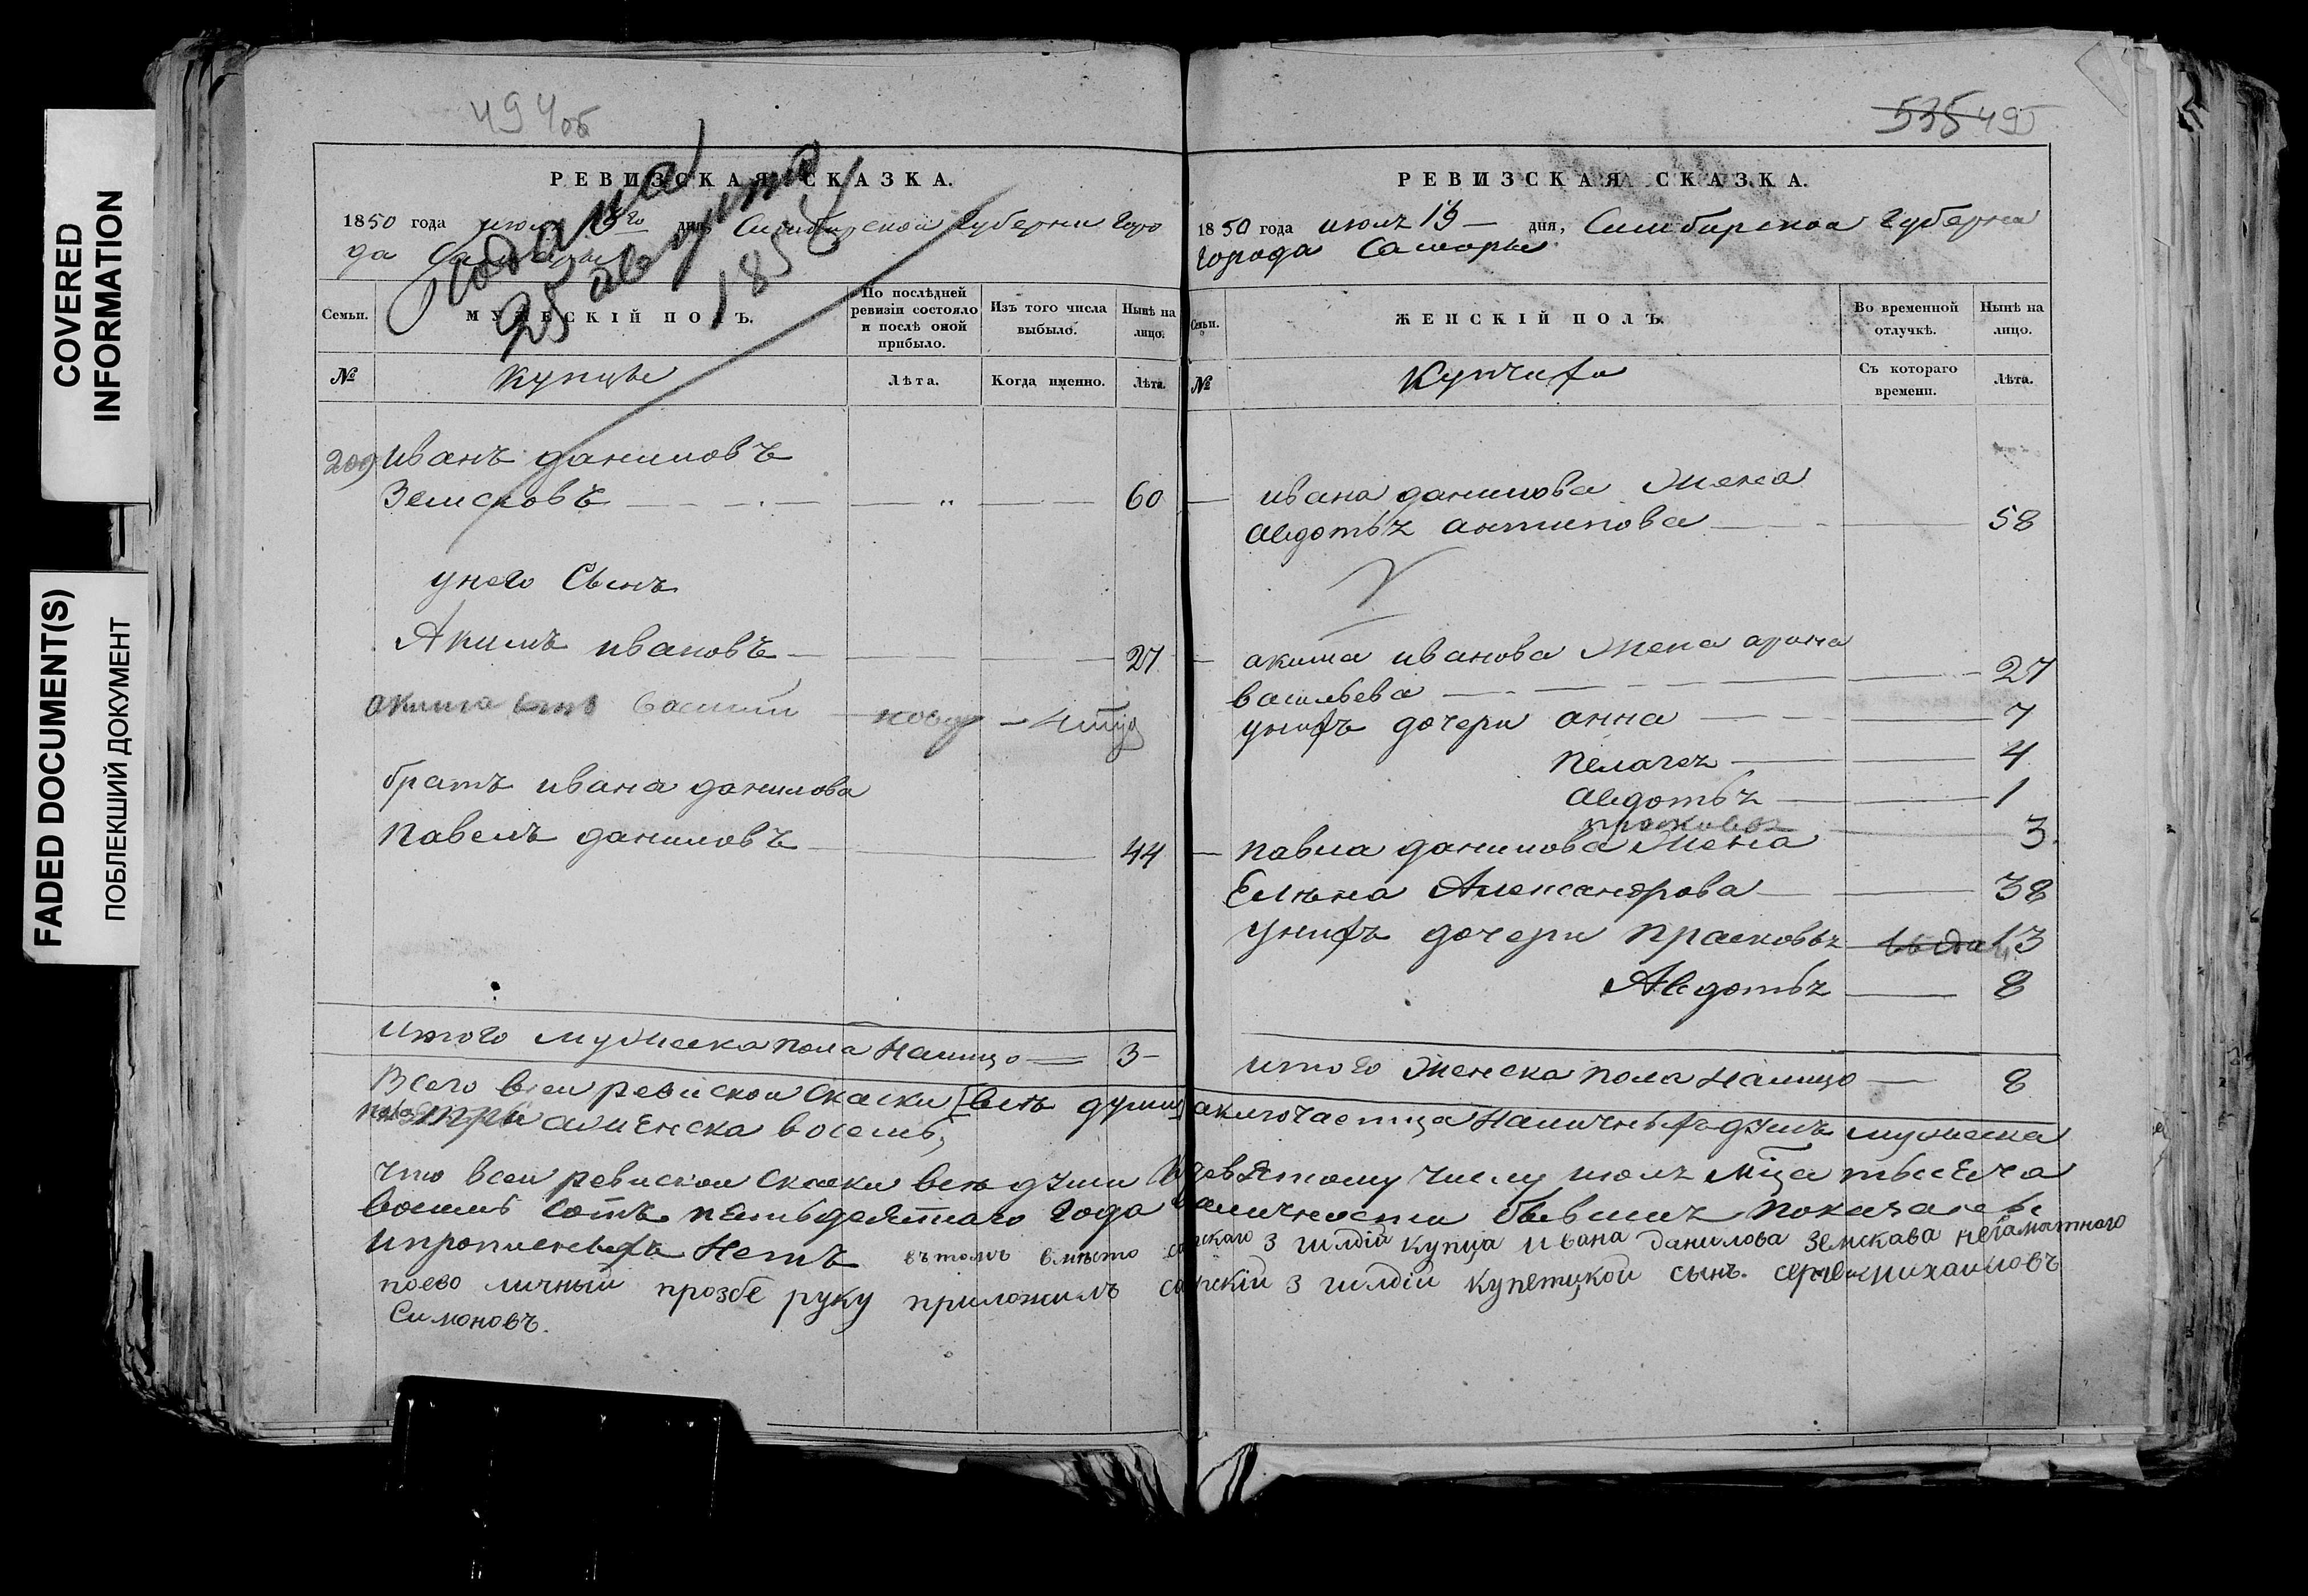 COVERED
INFORMATION
FADED DOCUMENT(S)
ПОБЛЕКШИЙ ДОКУМЕНТ
494об
РЕВИЗСКАЯ СКАЗКА.
1850 года июля дня, Симбирской Губернии Горо
да Самары
подана
25 августа
185
Семьи.
МУЖЕСКІЙ ПОЛЪ.
По послѣдней ревизіи состояло и послѣ оной прибыло.
Изъ того числа выбыло.
Нынѣ на лицо.
№
Купцы
Лѣта.
Когда именно.
Лѣта.
209 Иванъ даниловъ
Земсковъ 60
унего Сынъ
Акимъ ивановъ 27
акима
братъ ивана данилова
павелъ даниловъ 44
итого мужеска пола Налицо 3
535 495
РЕВИЗСКАЯ СКАЗКА.
1850 года июля 19 дня, Симбирской Губерни
города Самары
Семьи.
ЖЕНСКІЙ ПОЛЪ.
Во временной отлучкѣ.
Нынѣ на лицо.
№
Купчихи
Съ котораго времени.
Лѣта.
ивана данилова жена
авдотья антипова 58
акима иванова жена арина
васильева 27
унихъ дочери анна 7
пелагея 4
авдотья 1
прасковья 3
павла данилова жена
Елѣна Александрова 38
унихъ дочери прасковья 13
Авдотья 8
итого женска пола Налицо 8
Всего всеи ревиской скаски всѣ души заключаетца Наличныхъ душъ мужеска
пола три аженска восемь,
что всеи ревиской скаски всѣ души девятому числу июля мца тысеча
восемь сотъ пятьдесятаго года вналичности бывшия показаны
ипрописныхъ Нетъ вътомъ вместо 3 гилдіи купца ивана данилова земскава неграматного
поево личный прозбе руку приложилъ 3 гилдіи купетцкой сынъ. сергеи михаиловъ
Симоновъ.